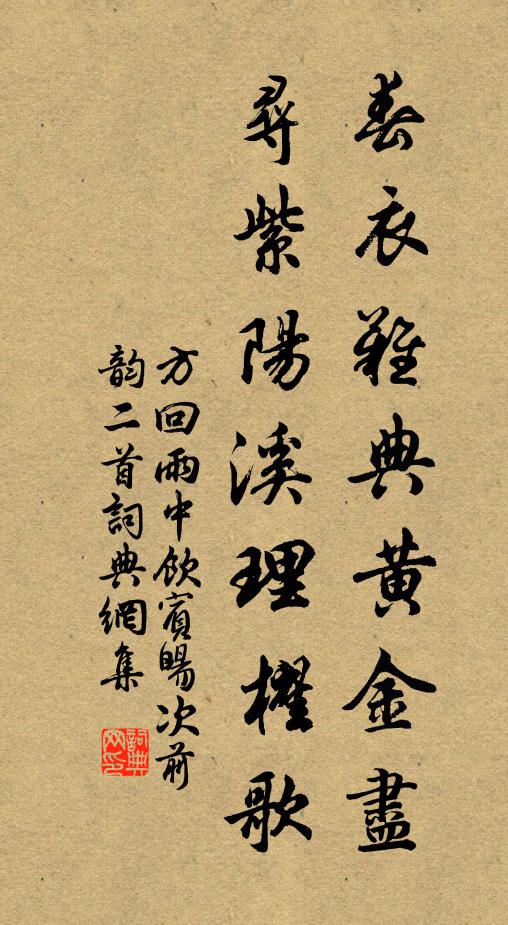 春衣難典黃金盡
尋紫陽溪理櫂歌
方回雨中飲賓暘次前
韵二首詞典網集
詞典網印